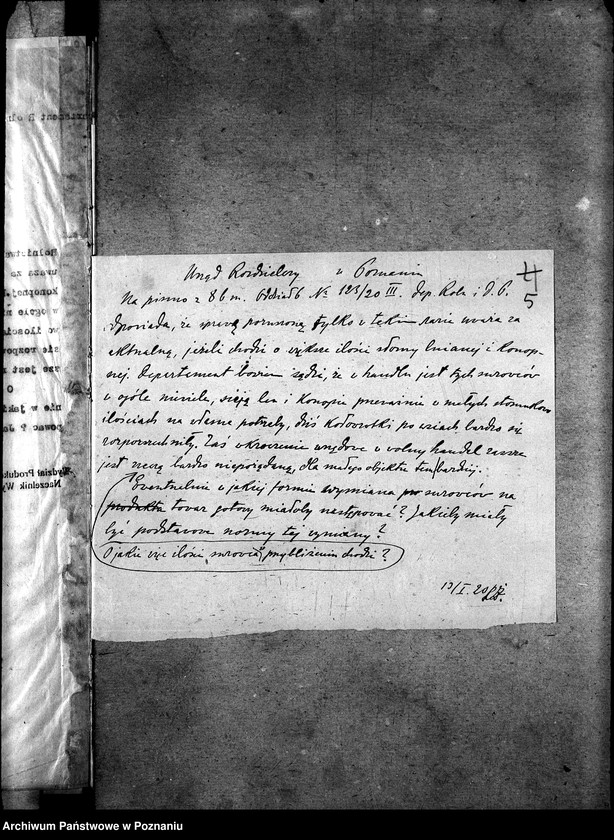 4
5
Urząd Rozdzielczy w Poznaniu
Na pismo z 8 b m. Oddział 6 No 123/20 III. Dep. Roln. i D. P.
odpowiada, że sprawę poruszoną tylko w takim razie uważa za
aktualną, jeżeli chodzi o większe ilości słomy lnianej i konop-
nej. Departament bowiem sądzi, że w handlu jest tych surowców
w ogóle niewiele, sieją len i konopie przeważnie w małych stosunkowo
ilościach na własne potrzeby, dziś kołowrotki po wsiach bardzo się
rozpowszechniły. Zaś wkroczenie urzędowe w wolny handel zawsze
jest rzeczą bardzo niepożądaną, dla małego objektu tembardziej.
Ewentualnie w jakiej formie wymiana surowców na
produkta towar gotowy miałaby następować? Jakieby miały
być podstawowe normy tej wymiany?
O jakie więc ilości surowca w przybliżeniu chodzi?
13/I. 20
Wydział Produkc
Naczelnik Wy
Archiwum Państwowe w Poznaniu